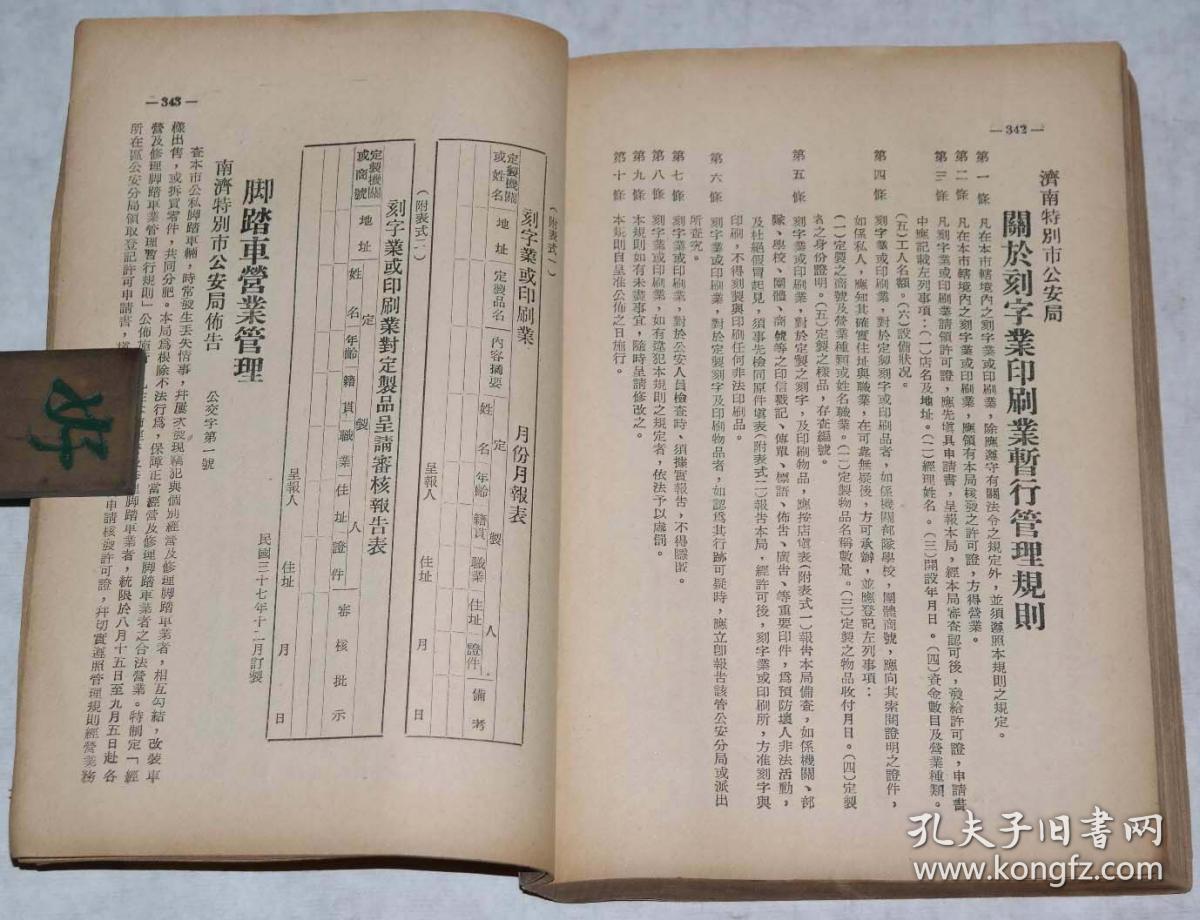 —342—
濟南特別市公安局
關於刻字業印刷業暫行管理規則
第一條 凡在本市轄境內之刻字業或印刷業，除應遵守有關法令之規定外，並須遵照本規則之規定。
第二條 凡在本市轄境內之刻字業或印刷業，應領有本局核發之許可證，方得營業。
第三條 凡刻字業或印刷業請領許可證，應先塡具申請書，呈報本局，經本局審查認可後，發給許可證，申請書
中應記載左列事項：（一）店名及地址。（二）經理姓名。（三）開設年月日。（四）資金數目及營業種類。
（五）工人名額。（六）設備狀况。
第四條 刻字業或印刷業，對於定製刻字或印刷品者，如係機關部隊學校，團體商號，應向其索閱證明之證件，
如係私人，應知其確實住址與職業，在可靠無疑後，方可承辦，並應登記左列事項：
（一）定製之商號及營業種類或姓名職業。（二）定製物品名稱數量。（三）定製之物品收付月日。（四）定製
名之身份證明。（五）定製之樣品，存查編號。
第五條 刻字業或印刷業，對於定製之刻字，及印刷物品，應按店塡表（附表式一）報告本局備查，如係機關、部
隊、學校、團體、商號等之印信戳記、傳單、標語、佈告、廣告、等重要印件，爲預防壞人非法活動，
及杜絕假冒起見，須事先檢同原件塡表（附表式二）報告本局，經許可後，刻字業或印刷所，方准刻字與
印刷，不得刻製與印刷任何非法印刷品。
第六條 刻字業或印刷業，對於定製刻字及印刷物品者，如認爲其行跡可疑時，應立卽報告該管公安分局或派出
所查究。
第七條 刻字業或印刷業，對於公安人員檢查時、須據實報告，不得隱匿。
第八條 刻字業或印刷業，如有違犯本規則之規定者，依法予以處罰。
第九條 本規則如有未盡事宜，隨時呈請修改之。
第十條 本規則自呈准公佈之日施行。
—343—
（附表式一）
刻字業或印刷業 月份月報表
定製機關或姓名 地址 定製品名 內容摘要 定製人 姓名 年齡 籍貫 職業 住址 證件 備考
呈報人 住址 月 日
（附表式二）
刻字業或印刷業對定製品呈請審核報告表
定製機關或商號 地址 定製人 姓名 年齡 籍貫 職業 住址 證件 審核批示
呈報人 住址 月 日
民國三十七年十二月訂製
脚踏車營業管理
南濟特別市公安局佈告 公交字第一號
查本市公私脚踏車輛，時常發生丟失情事，幷屢次發現竊犯與個別經營及修理脚踏車業者，相互勾結，改裝車
樣出售，或拆賣零件，共同分肥。本局爲根除不法行爲，保障正當經營及修理脚踏車業者之合法營業。特制定「經
營及修理脚踏車業管理暫行規則」公佈施行 脚踏車業者，統限於八月十五日至九月五日赴各
所在區公安分局領取登記許可申請書， 申請核發許可證，幷切實遵照管理規則經營業務
好
孔夫子旧书网
www.kongfz.com